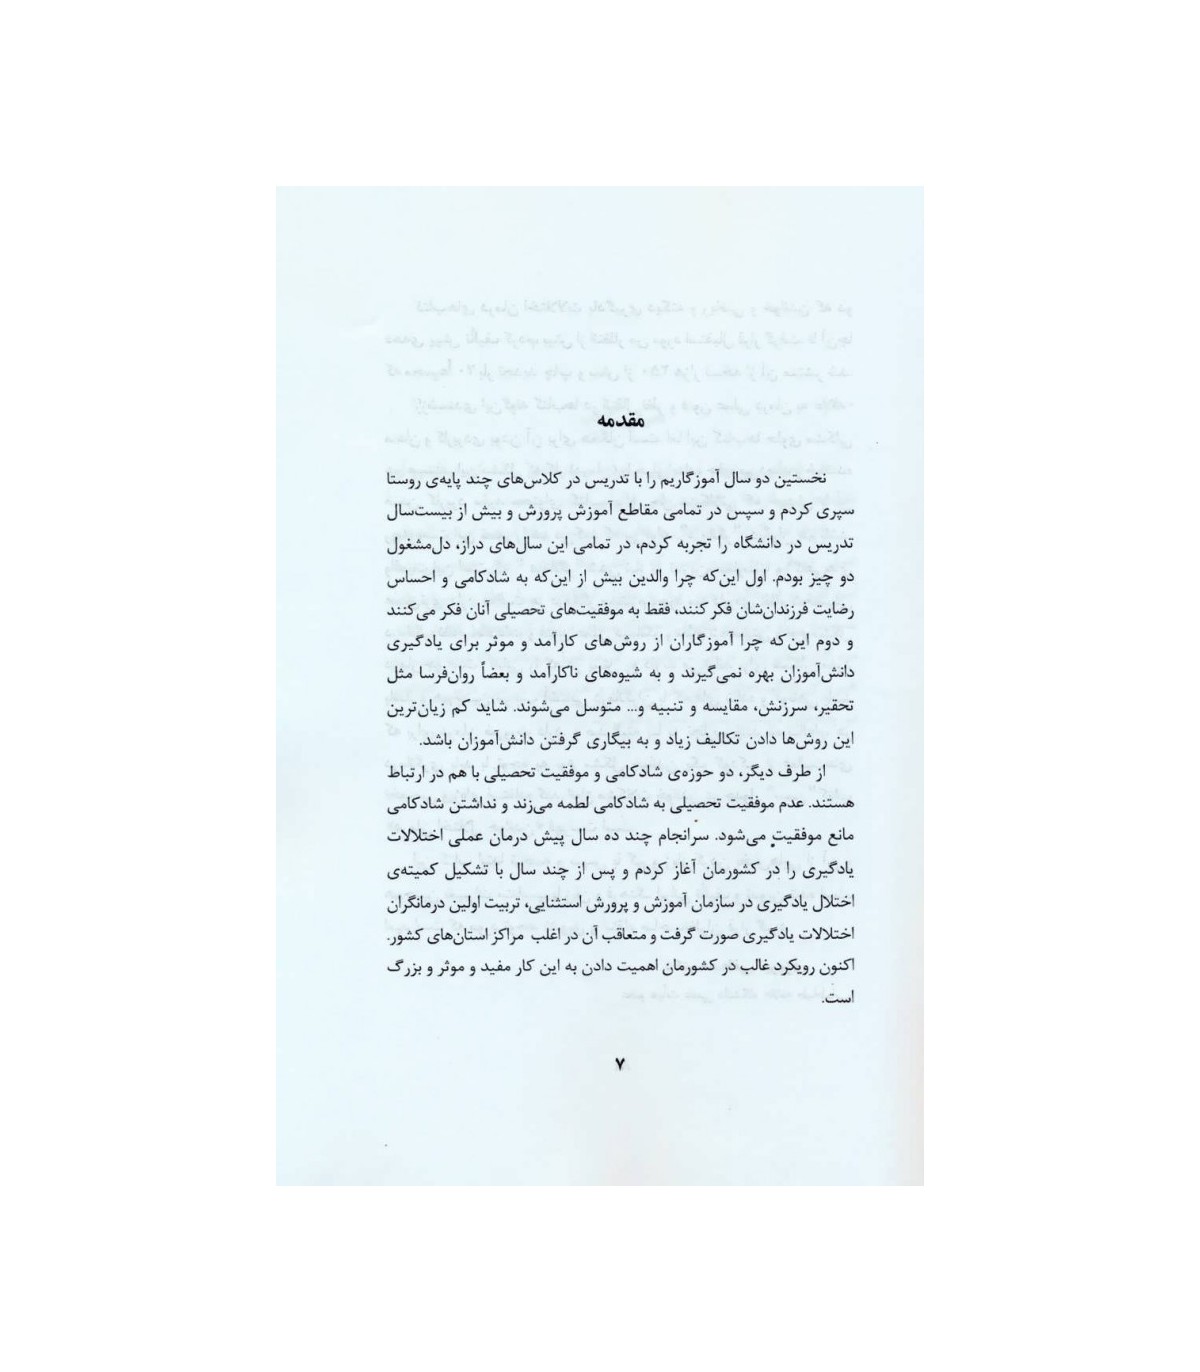 مقدمه
نخستین دو سال آموزگاریم را با تدریس در کلاس‌های چند پایه‌ی روستا
سپری کردم و سپس در تمامی مقاطع آموزش پرورش و بیش از بیست‌سال
تدریس در دانشگاه را تجربه کردم، در تمامی این سال‌های دراز، دل‌مشغول
دو چیز بودم. اول این‌که چرا والدین بیش از این‌که به شادکامی و احساس
رضایت فرزندان‌شان فکر کنند، فقط به موفقیت‌های تحصیلی آنان فکر می‌کنند
و دوم این‌که چرا آموزگاران از روش‌های کارآمد و موثر برای یادگیری
دانش‌آموزان بهره نمی‌گیرند و به شیوه‌های ناکارآمد و بعضاً روان‌فرسا مثل
تحقیر، سرزنش، مقایسه و تنبیه و... متوسل می‌شوند. شاید کم زیان‌ترین
این روش‌ها دادن تکالیف زیاد و به بیگاری گرفتن دانش‌آموزان باشد.
از طرف دیگر، دو حوزه‌ی شادکامی و موفقیت تحصیلی با هم در ارتباط
هستند. عدم موفقیت تحصیلی به شادکامی لطمه می‌زند و نداشتن شادکامی
مانع موفقیت می‌شود. سرانجام چند ده سال پیش درمان عملی اختلالات
یادگیری را در کشورمان آغاز کردم و پس از چند سال با تشکیل کمیته‌ی
اختلال یادگیری در سازمان آموزش و پرورش استثنایی، تربیت اولین درمانگران
اختلالات یادگیری صورت گرفت و متعاقب آن در اغلب مراکز استان‌های کشور.
اکنون رویکرد غالب در کشورمان اهمیت دادن به این کار مفید و موثر و بزرگ
است.
۷